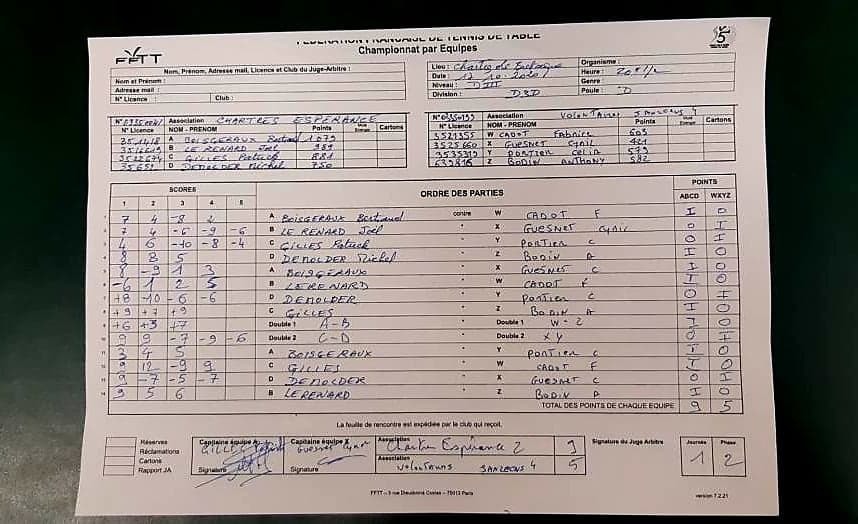 FEDERATION FRANCAISE DE TENNIS DE TABLE
Championnat par Equipes
FFTT
Nom, Prénom, Adresse mail, Licence et Club du Juge-Arbitre :
Nom et Prénom :
Adresse mail :
N° Licence : Club :
Lieu : Organisme :
Date : Heure :
Niveau : DIII Genre :
Division : D3D Poule : D
Association CHARTRES ESPERANCE
N° Licence NOM - PRENOM Points Cartons
A BOISGERAUX Bertrand 1079
B LE RENARD Joël 989
C GILLES Patrick 881
D DEMOLDER Michel 750
Association VOLONTAIRES
N° Licence NOM - PRENOM Points Cartons
3521355 W CADOT Fabrice 605
3525660 X GUESNET Cyril 421
Y PORTIER Celia 579
Z BODIN ANTHONY 582
SCORES ORDRE DES PARTIES POINTS
1 2 3 4 5 ABCD WXYZ
7 4 -8 2 A BOISGERAUX Bertrand contre W CADOT F I O
7 4 -6 -9 -6 B LE RENARD Joël " X GUESNET Cyril O I
4 6 -10 -8 -4 C GILLES Patrick " Y PORTIER C O I
8 8 5 D DEMOLDER Michel " Z BODIN A I O
8 -9 1 3 A BOISGERAUX " X GUESNET C I O
-6 1 2 5 B LERENARD " W CADOT F I O
+8 -10 -6 -6 D DEMOLDER " Y PORTIER C O I
+9 +7 +9 C GILLES " Z BODIN A I O
+6 +3 +7 Double 1 A-B " Double 1 W-Z I O
9 9 -7 -9 -6 Double 2 C-D " Double 2 XY O I
3 4 5 A BOISGERAUX " Y PORTIER C I O
9 12 -9 9 C GILLES " W CADOT F I O
9 -7 -5 -7 D DEMOLDER " X GUESNET C O I
9 5 6 B LERENARD " Z BODIN A I O
TOTAL DES POINTS DE CHAQUE EQUIPE 9 5
La feuille de rencontre est expédiée par le club qui reçoit.
Réserves
Réclamations
Cartons
Rapport JA
Capitaine équipe A
GILLES Patrick
Signature
Capitaine équipe X
Guesnet Cyril
Signature
Association
Chartres Espérance 2 9
Association
Volontaires 5
Signature du Juge Arbitre
Journée Phase
1 2
FFTT – 3 rue Dieudonné Costes – 75013 Paris
version 7.2.21